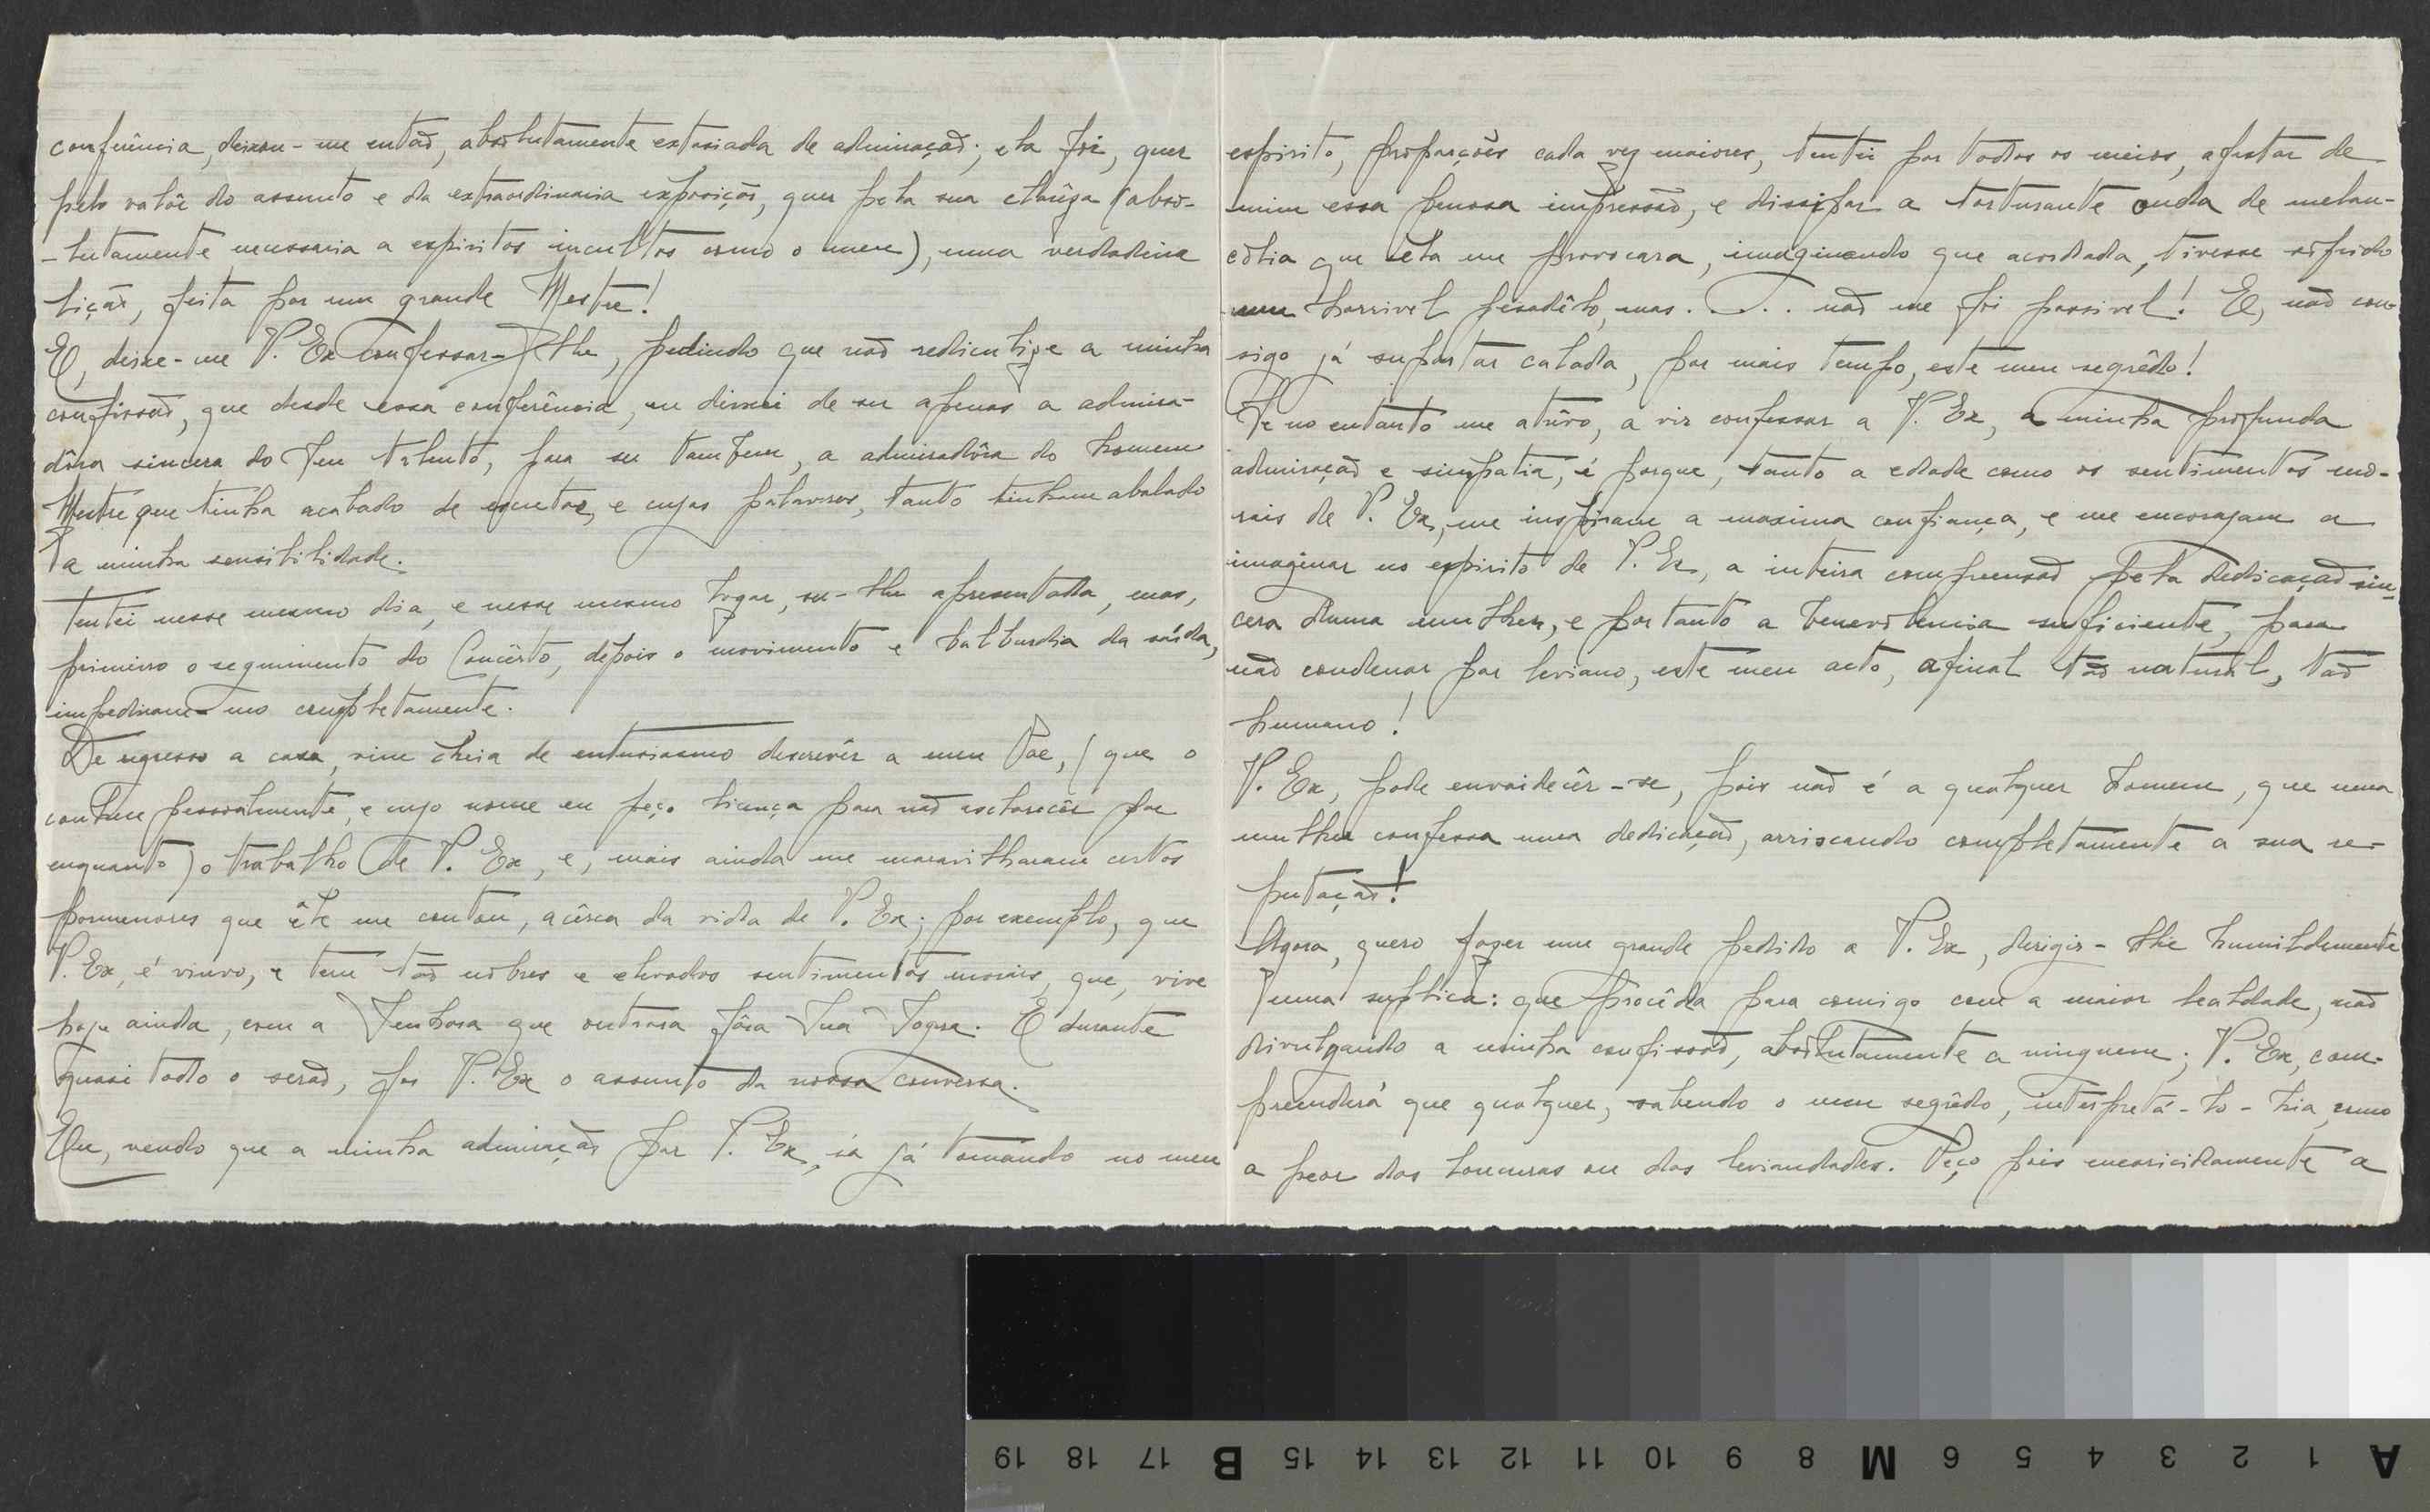 confrência, deixou-me entaõ, absolutamente extasiada de admiraçaõ; ela foi, quer
pelo valôr do assunto e da extraordinaria exposiçaõ, quer pela sua clarêza (abso-
-lutamente necessaria a espiritos incultos como o meu), uma verdadeira
liçaõ, feita por um grande Mestre!
E, deixe-me V. Ex confessar-lhe, pedindo que naõ redicularize a minha
confissaõ, que desde essa conferência, eu deixei de ser apenas a admira-
dôra sincera do Seu talento, para ser tambem, a admiradôra do homem
Mestre que tinha acabado de escutar, e cujas palavras, tanto tinham abalado
a minha sensibilidade.
Tentei nesse mesmo dia, e nesse mesmo logar, ser-lhe apresentada, mas,
primeiro o seguimento do Concêrto, depois o movimento e balburdia da saída,
impediram-mo completamente.
De regresso a casa, vim cheia de entusiasmo descrevêr a meu Pae, (que o
conhece pessoalmente, e cujo nome eu peço licença para naõ esclarecêr por
enquanto) o trabalho de V. Ex, e, mais ainda me maravilharam certos
pormenores que êle me contou, acêrca da vida de V. Ex; por exemplo, que
V. Ex, é viuvo, e tem taõ nobres e elevados sentimentos morais, que, vive
hoje ainda, com a Senhora que outrora fôra Sua Sogra. E durante
quasi todo o seraõ, foi V. Ex o assunto da nossa conversa.
Eu, vendo que a minha admiraçaõ por V. Ex, ia já tomando no meu
espirito, proporçoẽs cada vez maiores, tentei por todos os meios, afastar de
mim essa penosa impressaõ, e dissipar a torturante onda de melan-
colia que ela me provocara, imaginando que acordada, tivesse sofrido
um horrivel pesadêlo, mas. . . . naõ me foi possivel! E, naõ con-
sigo já suportar calada, por mais tempo, este meu segrêdo!
Se no entanto me atrêvo, a vir confessar a V. Ex, a minha profunda
admiraçaõ e simpatia, é porque, tanto a edade como os sentimentos mo-
rais de V. Ex, me inspiram a maxima confiança, e me encorajam a
imaginar no espirito de V. Ex, a inteira compreensaõ pela dedicaçaõ sin-
cera duma mulher, e portanto a benevolencia suficiente, para
naõ condenar por leviano, este meu acto, afinal taõ natural, taõ
humano!
V. Ex, pode envaidecêr-se, pois naõ é a qualquer homem, que uma
mulher confessa uma dedicaçaõ, arriscando completamente a sua re-
putaçaõ!
Agora, quero fazer um grande pedido a V. Ex, dirigir-lhe humildemente
uma suplica: que procêda para comigo com a maior lealdade, naõ
divulgando a minha confissaõ, absolutamente a ninguem; V. Ex, com-
preenderá que qualquer, sabendo o meu segrêdo, interpretá-lo-hia, como
a peor das loucuras ou das leviandades. Peço pois encarecidamente a
19 18 17 B 15 14 13 12 11 10 9 8 M 6 5 4 3 2 1 A